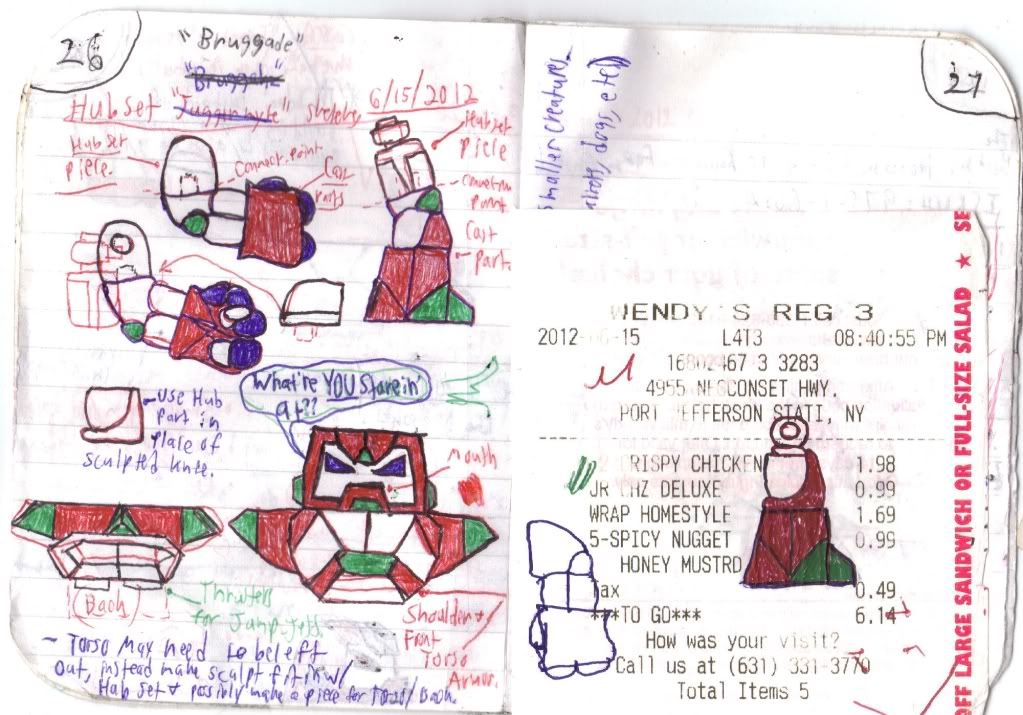 26
"Bruggade"
"Bruggah"
Hub Set "Juggernayte" sketch 6/15/2012
Hub Set
piece.
Connect. point
Cast
parts
Hub set
piece
Connect
point
Cast
part.
What're YOU Starein'
at??
-Use Hub
part in
place of
sculpted knee.
Mouth
(Back)
Thrusters
for Jump-Jets.
Shoulder +
Front
Torso
Armor.
~ Torso may need to be left
out, instead make sculpt fit in w/
Hub Set + possibly make a piece for Torso/Back.
27
smaller creatures
dogs, etc)
WENDY'S REG 3
2012-06-15 L4T3 08:40:55 PM
16802467 3 3283
4955 NESCONSET HWY.
PORT JEFFERSON STATI, NY
2 CRISPY CHICKEN 1.98
JR CHZ DELUXE 0.99
WRAP HOMESTYLE 1.69
5-SPICY NUGGET 0.99
HONEY MUSTRD
Tax 0.49
***TO GO*** 6.14
How was your visit?
Call us at (631) 331-3770
Total Items 5
OFF LARGE SANDWICH OR FULL-SIZE SALAD ★ SE